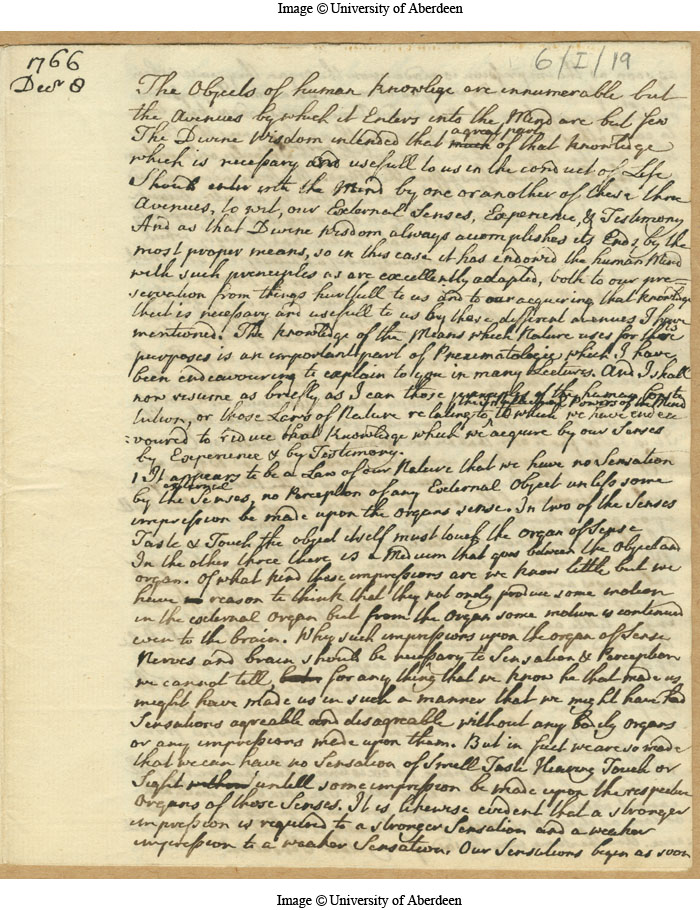 Image © University of Aberdeen
1766
Decr 8
6/I/19
The Objects of human Knowlege are innumerable but
the Avenues by which it Enters into the Mind are but few
The Divine Wisdom intended that a great part much of that Knowledge
which is necessary and usefull to us in the conduct of Life
Should enter into the Mind by one or another of these three
Avenues, to wit, our External Senses, Experience, & Testimony
And as that Divine Wisdom always accomplishes its Ends by the
most proper means, so in this case it has endowed the human Mind
with such principles as are excellently adapted, both to our pre=
servation from things hurtfull to us and to our acquiring that Knowledge
that is necessary and usefull to us by these different avenues I have
mentioned. The Knowledge of the Means which Nature uses for this
purposes is an important part of Pneumatologie which I have
been endeavouring to explain to you in many Lectures. And I shall
now resume as briefly as I can those principles of the human Consti
tution, or those Laws of Nature relating to the Intellectual powers of the Mind to which we have endea
:voured to reduce that Knowledge which we acquire by our Senses
by Experience & by Testimony.
1. It appears to be a Law of our Nature that we have no Sensation
by the external Senses, no Perception of any External Object unless some
impression be made upon the organs sense. In two of the Senses
Taste & Touch the object itself must touch the organ of Sense
In the other three there is a Medium that goes between the Object and
organ. Of what kind these impressions are we know little but we
have reason to think that they not onely produce some motion
in the external Organ but from the Organ some motion is continued
even to the brain. Why such impressions upon the organ of Sense
Nerves and brain should be necessary to Sensation & Perception
we cannot tell, but for any thing that we know he that made us
might have made us in such a manner that we might have had
Sensations agreable and disagreable without any bodily organs
or any impressions made upon them. But in fact we are so made
that we can have no Sensation of Smell Taste Hearing Touch or
Sight without untill some impression be made upon the respective
Organs of those Senses. It is likewise evident that a stronger
impression is required to a stronger Sensation and a weaker
impression to a weaker Sensation. Our Sensations begin as soon
Image © University of Aberdeen